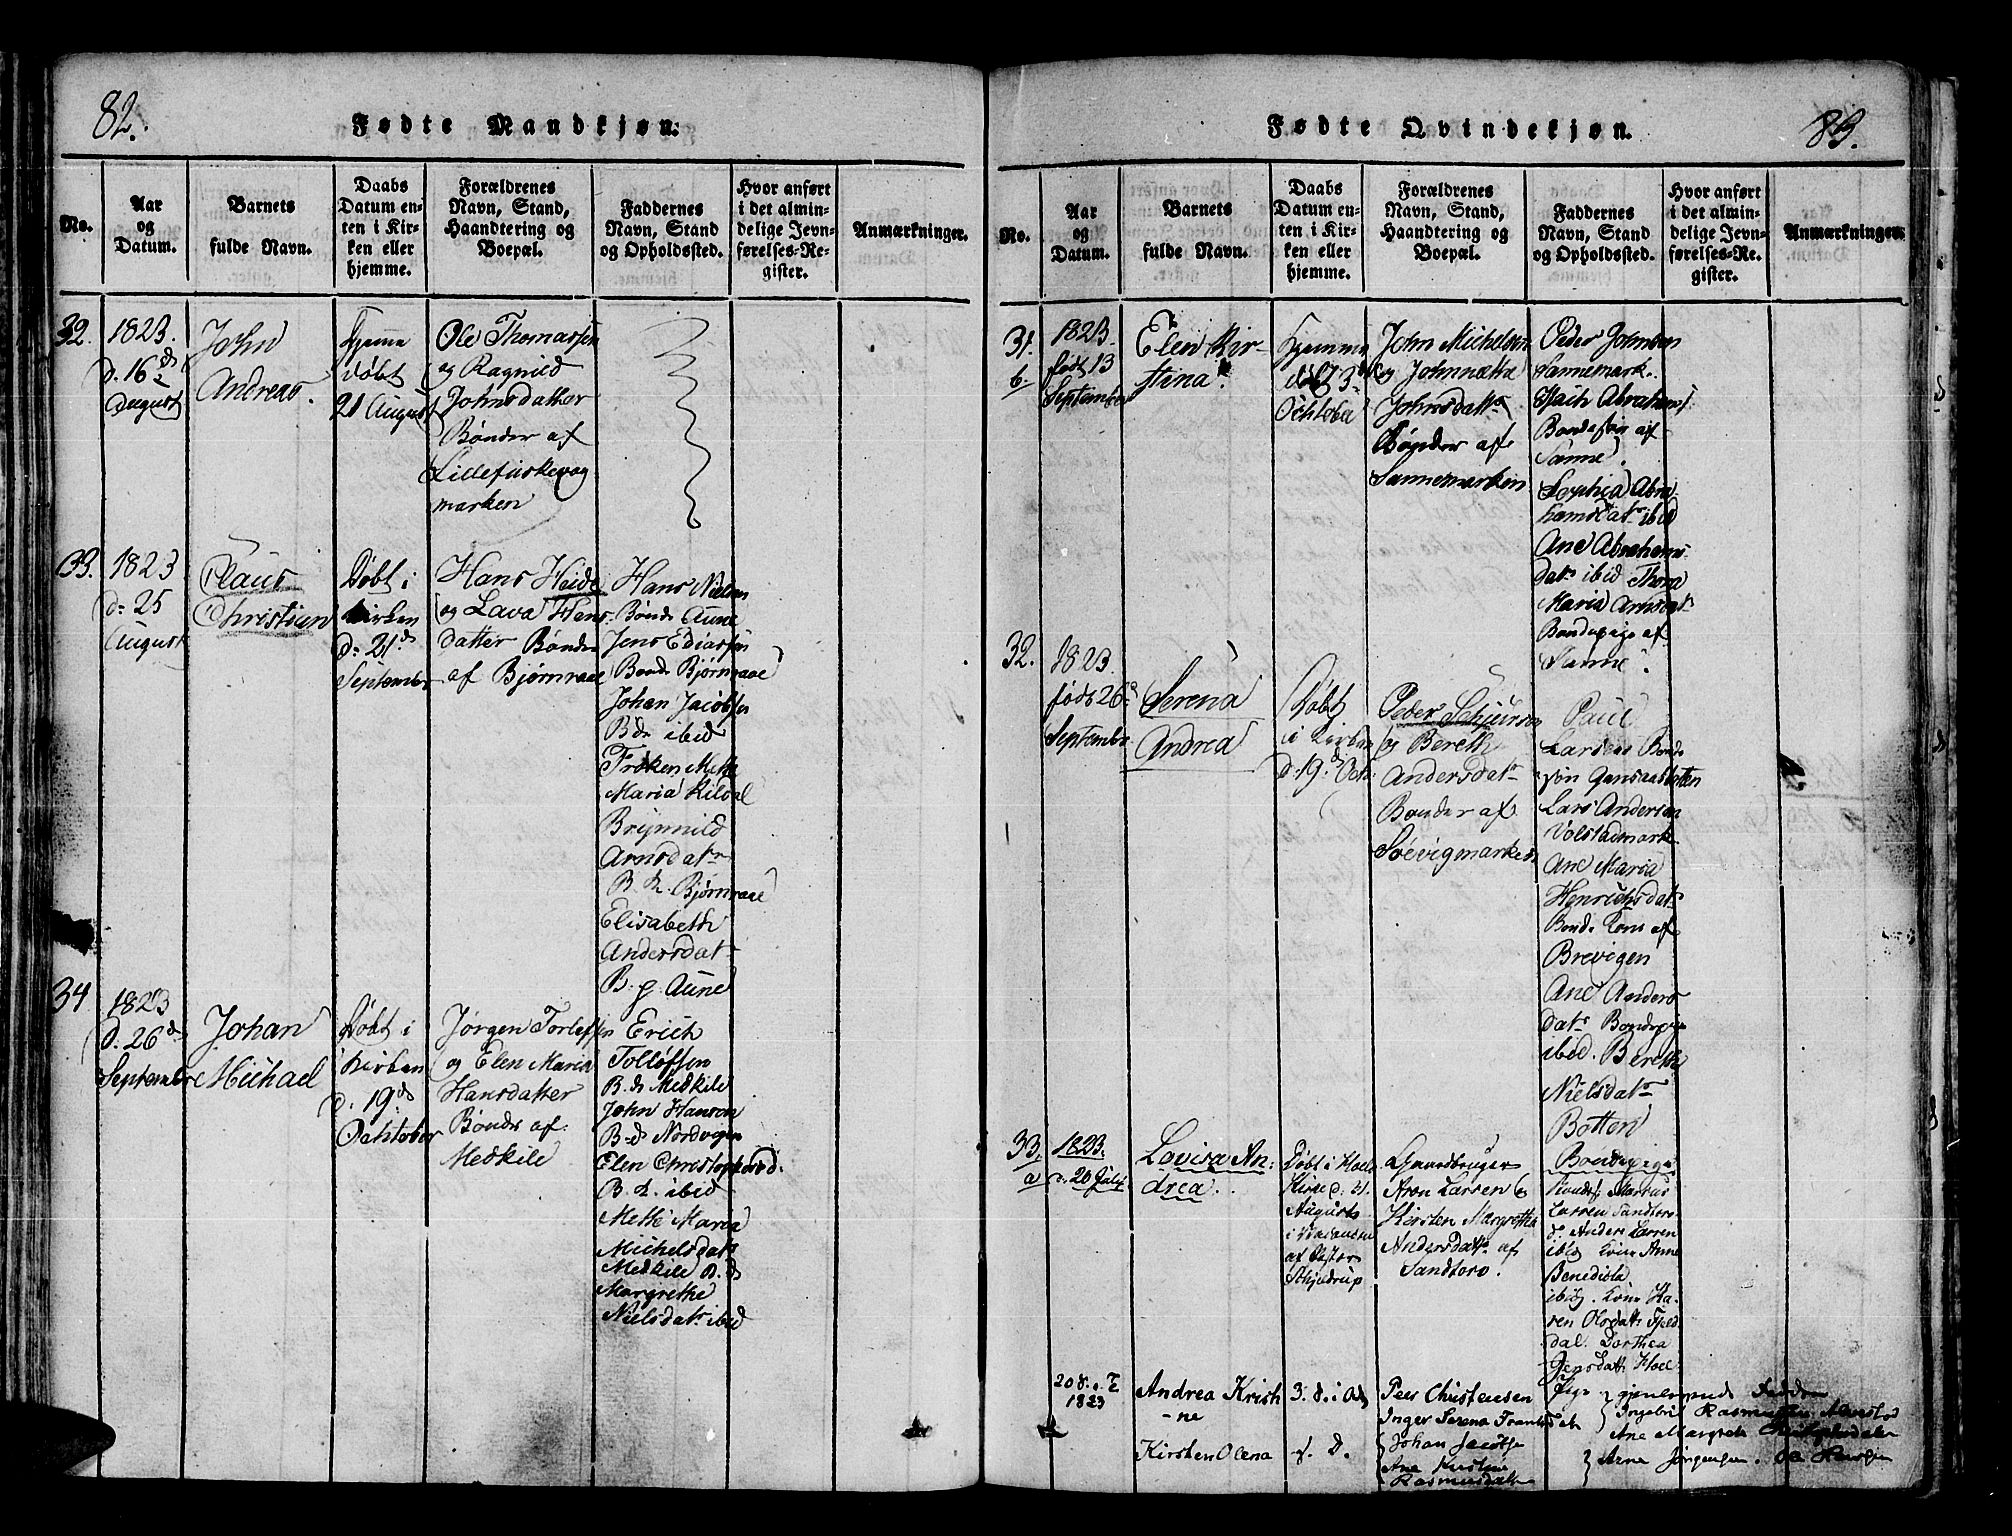 82.
Fødte Mandkjøn.
No.
Aar
og
Datum.
Barnets
fulde Navn.
Daabs
Datum en-
ten i Kir-
ken eller
hjemme.
Forældrenes
Navn, Stand,
Haandtering og
Boepæl.
Faddernes
Navn, Stand
og Opholdssted.
Hvor anført
i det almin-
delige Jevn-
førelses-Re-
gister.
Anmærkninger.
32.
1823.
d. 16de
August
John
Andreas.
Hjemme
døbt
21 August
Ole Thomassen
og Ragnild
Johnsdatter
Bønder af
Lillefuskevog
marken
33.
1823
d. 25
August
Claus
Christian
Døbt i
Kirken
d. 21de
September
Hans Heide
og Lava Hens-
datter Bønder
af Bjørnraae
Hans Nielsen
Bonde Aune
Jens Ediassen
Bonde Bjørnraae
Johan Jacobsen
Bde ibid
Frøken Mette
Maria Kildal
Brynnild
Arnsdatr
B. K. Bjørnraae
Elisabeth
Andersdatr
B. p. Aune
34
1823
d. 26de
September
Johan
Michael
Døbt i
Kirken
d. 19de
October
Jørgen Torlefsen
og Elen Maria
Hansdatter
Bønder af
Medkile
Erich
Tolløfsen
B.de Medkile
John Hanson
B-de Nordvigen
Elen Christophersd.
B. K. ibid
Mette Maria
Michelsdatr
Medkile
Margrethe
Nielsdatr ibid
83.
Fødte Qvindekjøn.
No.
Aar
og
Datum.
Barnets
fulde Navn.
Daabs
Datum en-
ten i Kir-
ken eller
hjemme.
Forældrenes
Navn, Stand,
Haandtering og
Boepæl.
Faddernes
Navn, Stand
og Opholdssted.
Hvor anført
i det almin-
delige Jevn-
førelses-Re-
gister.
Anmærkninger.
31.
b.
1823.
født 13
September
Elen Kir-
stina.
Hjemme
døbt 3de
October
John Michelsen
og Johnnætta
Johnsdatr
Bønder af
Sannemarken
Peder Johnsen
Sannemark.
Abrahams
Bondesøn af
Sanne.
Sophia Abra-
hamsdatr ibid
Ane Abrahams-
datr ibid Thora
Maria Arnsdatr
Bondepige af
Sanne.
32.
1823.
født 26de
September
Serena
Andrea
Døbt
i Kirken
d. 19de Octr.
Peder Schjersen
og Bereth
Andersdatr
Bønder af
Søevigmarken
Paul
Larsens Bonde
søn Gansaasbotten
Lars Andersen
Volstadmark
Ane Maria
Henrichsdatr
Bonde Kone af
Brevigen
Ane Anders
datr Bondepige
ibid. Berethe
Nielsdatr
Botten
Bondepige
33.
a
1823.
d. 20 July.
Lovisa An-
drea.
Døbt i Hoels
Kirke d. 31.
Augusts
af Pastor
Schjedrup
Gaardbruger
Aron Larsen og
Kirsten Margrethe
Andersdatr af
Sandtorv.
Markus
Larsen Sandtorv
d. Anders Larsen
ibid Kone Anne
Benedicta
ibid. Kone Ka-
ren Olsdatr Fjeld-
dal. Dorthea
Jensdatr Hoel
1823
Andrea Kristi-
-ne
Peer Christensen
Inger Serena
Rasmussen
Ane Margrete
Kirsten Olena
Johan Jacobsen
Ane Kirstine
Rasmusdatter
Arne Jørgensen. Ole Hansen